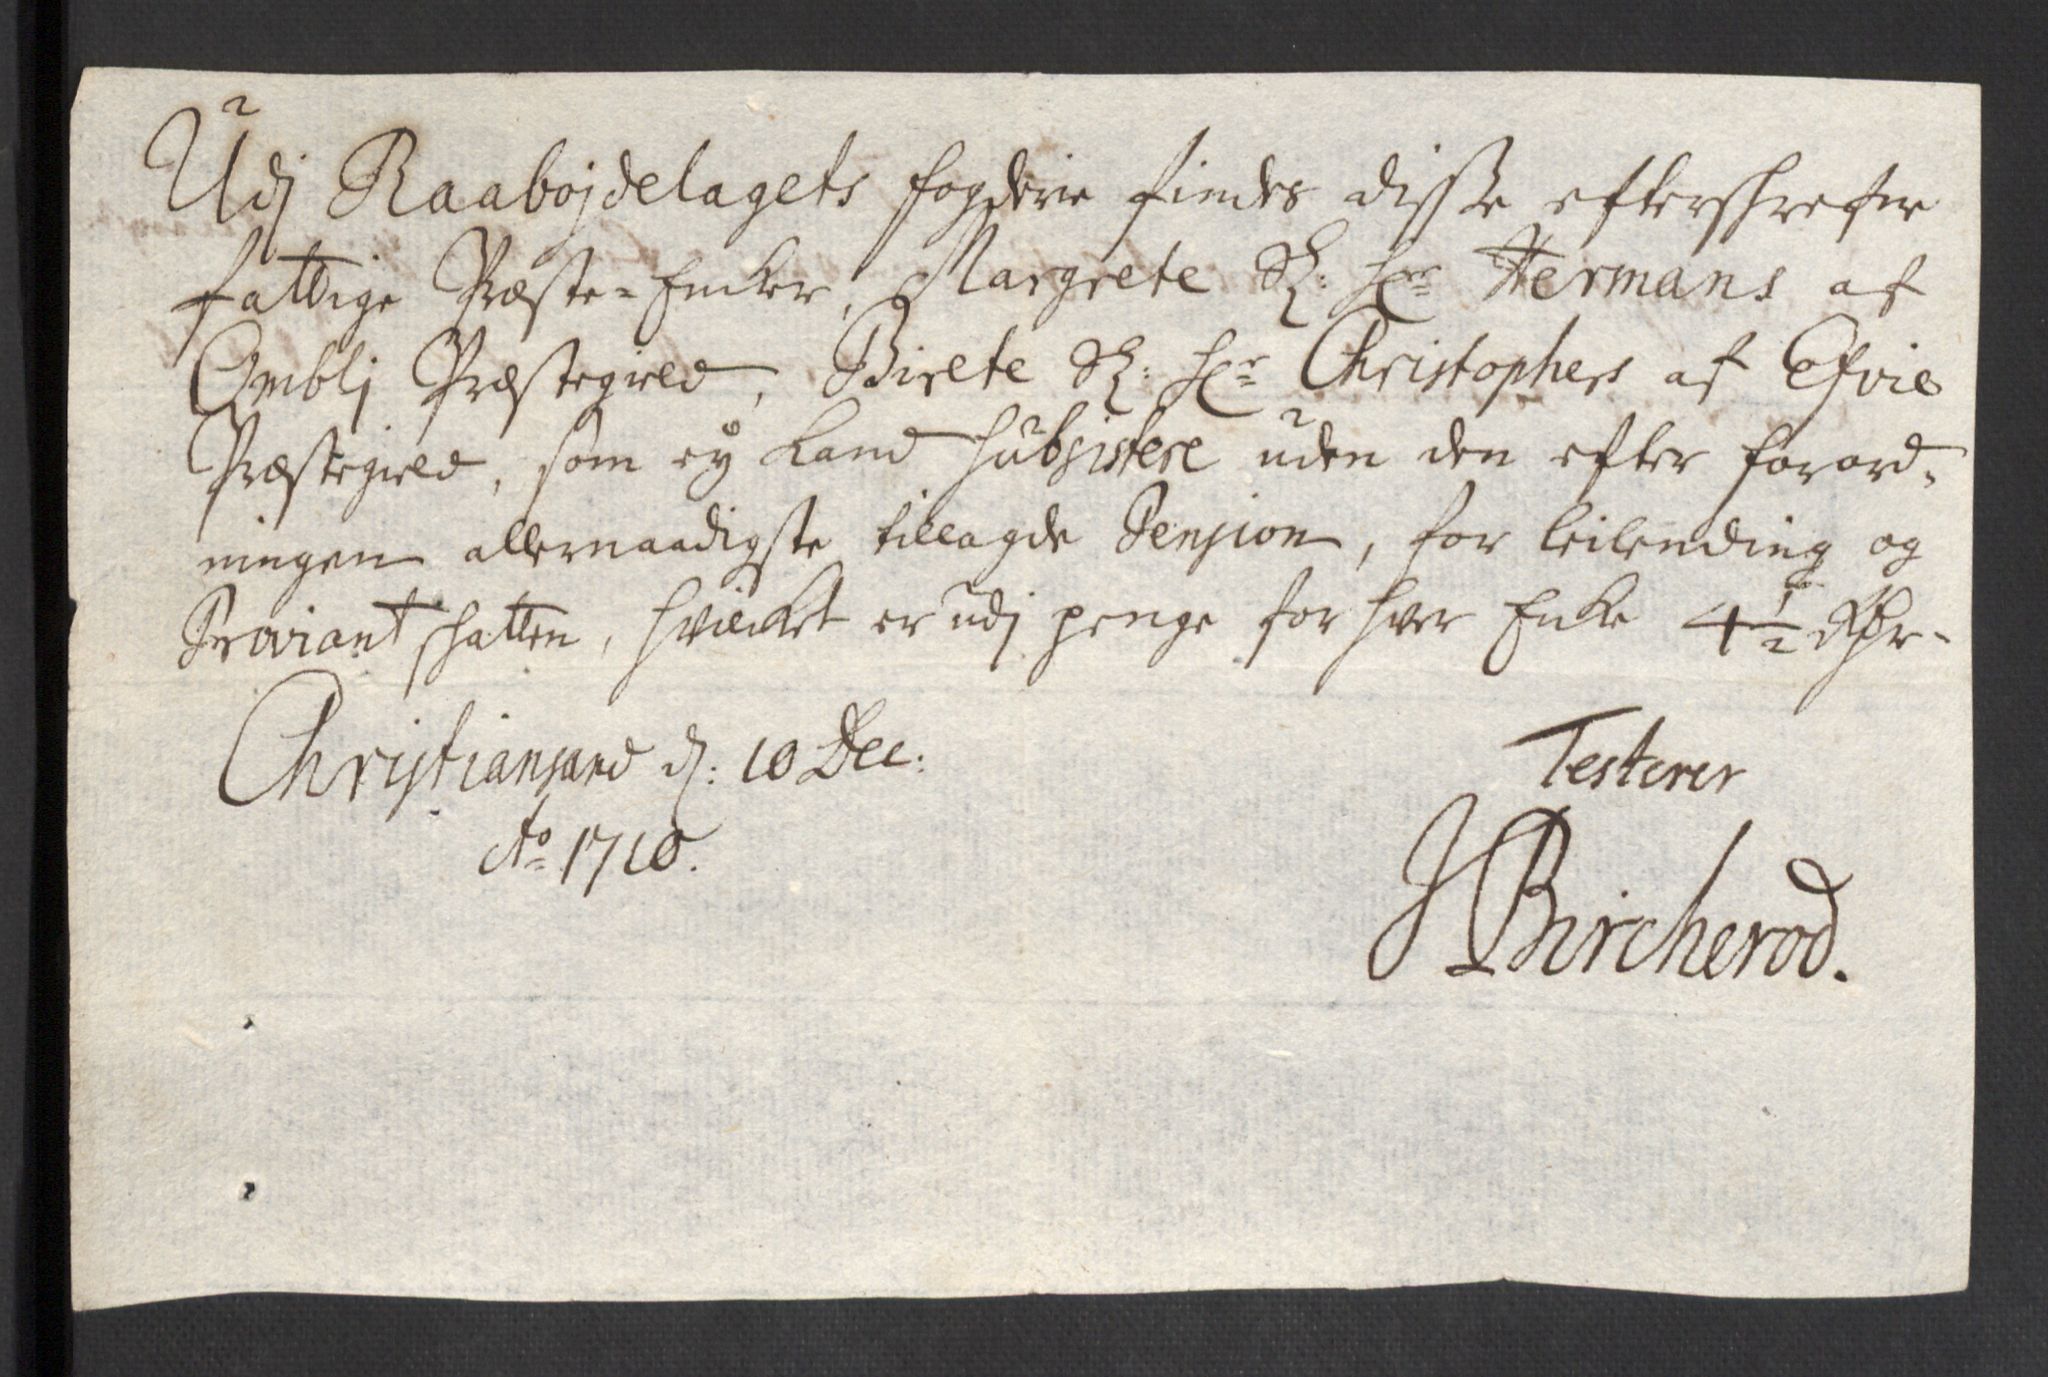 Udj Raabojdelagets fogderie findes disse efterskrefne
fattige Præste-Encker, Margrete Sl: Hr Hermans af
Omblj Præstegield, Birete Sl: Hr Christophers af Efvie
Præstegield, som ey kand subsistere uden den efter forord-
ningen allernaadigste tillagde Pension, for leilending og
Proviant skatten, hvilcket er udj penge for hver Enke 4½ Rdr-
Christiansand d: 10 Dec:
Ao 1710.
Testerer
J Bircherod.